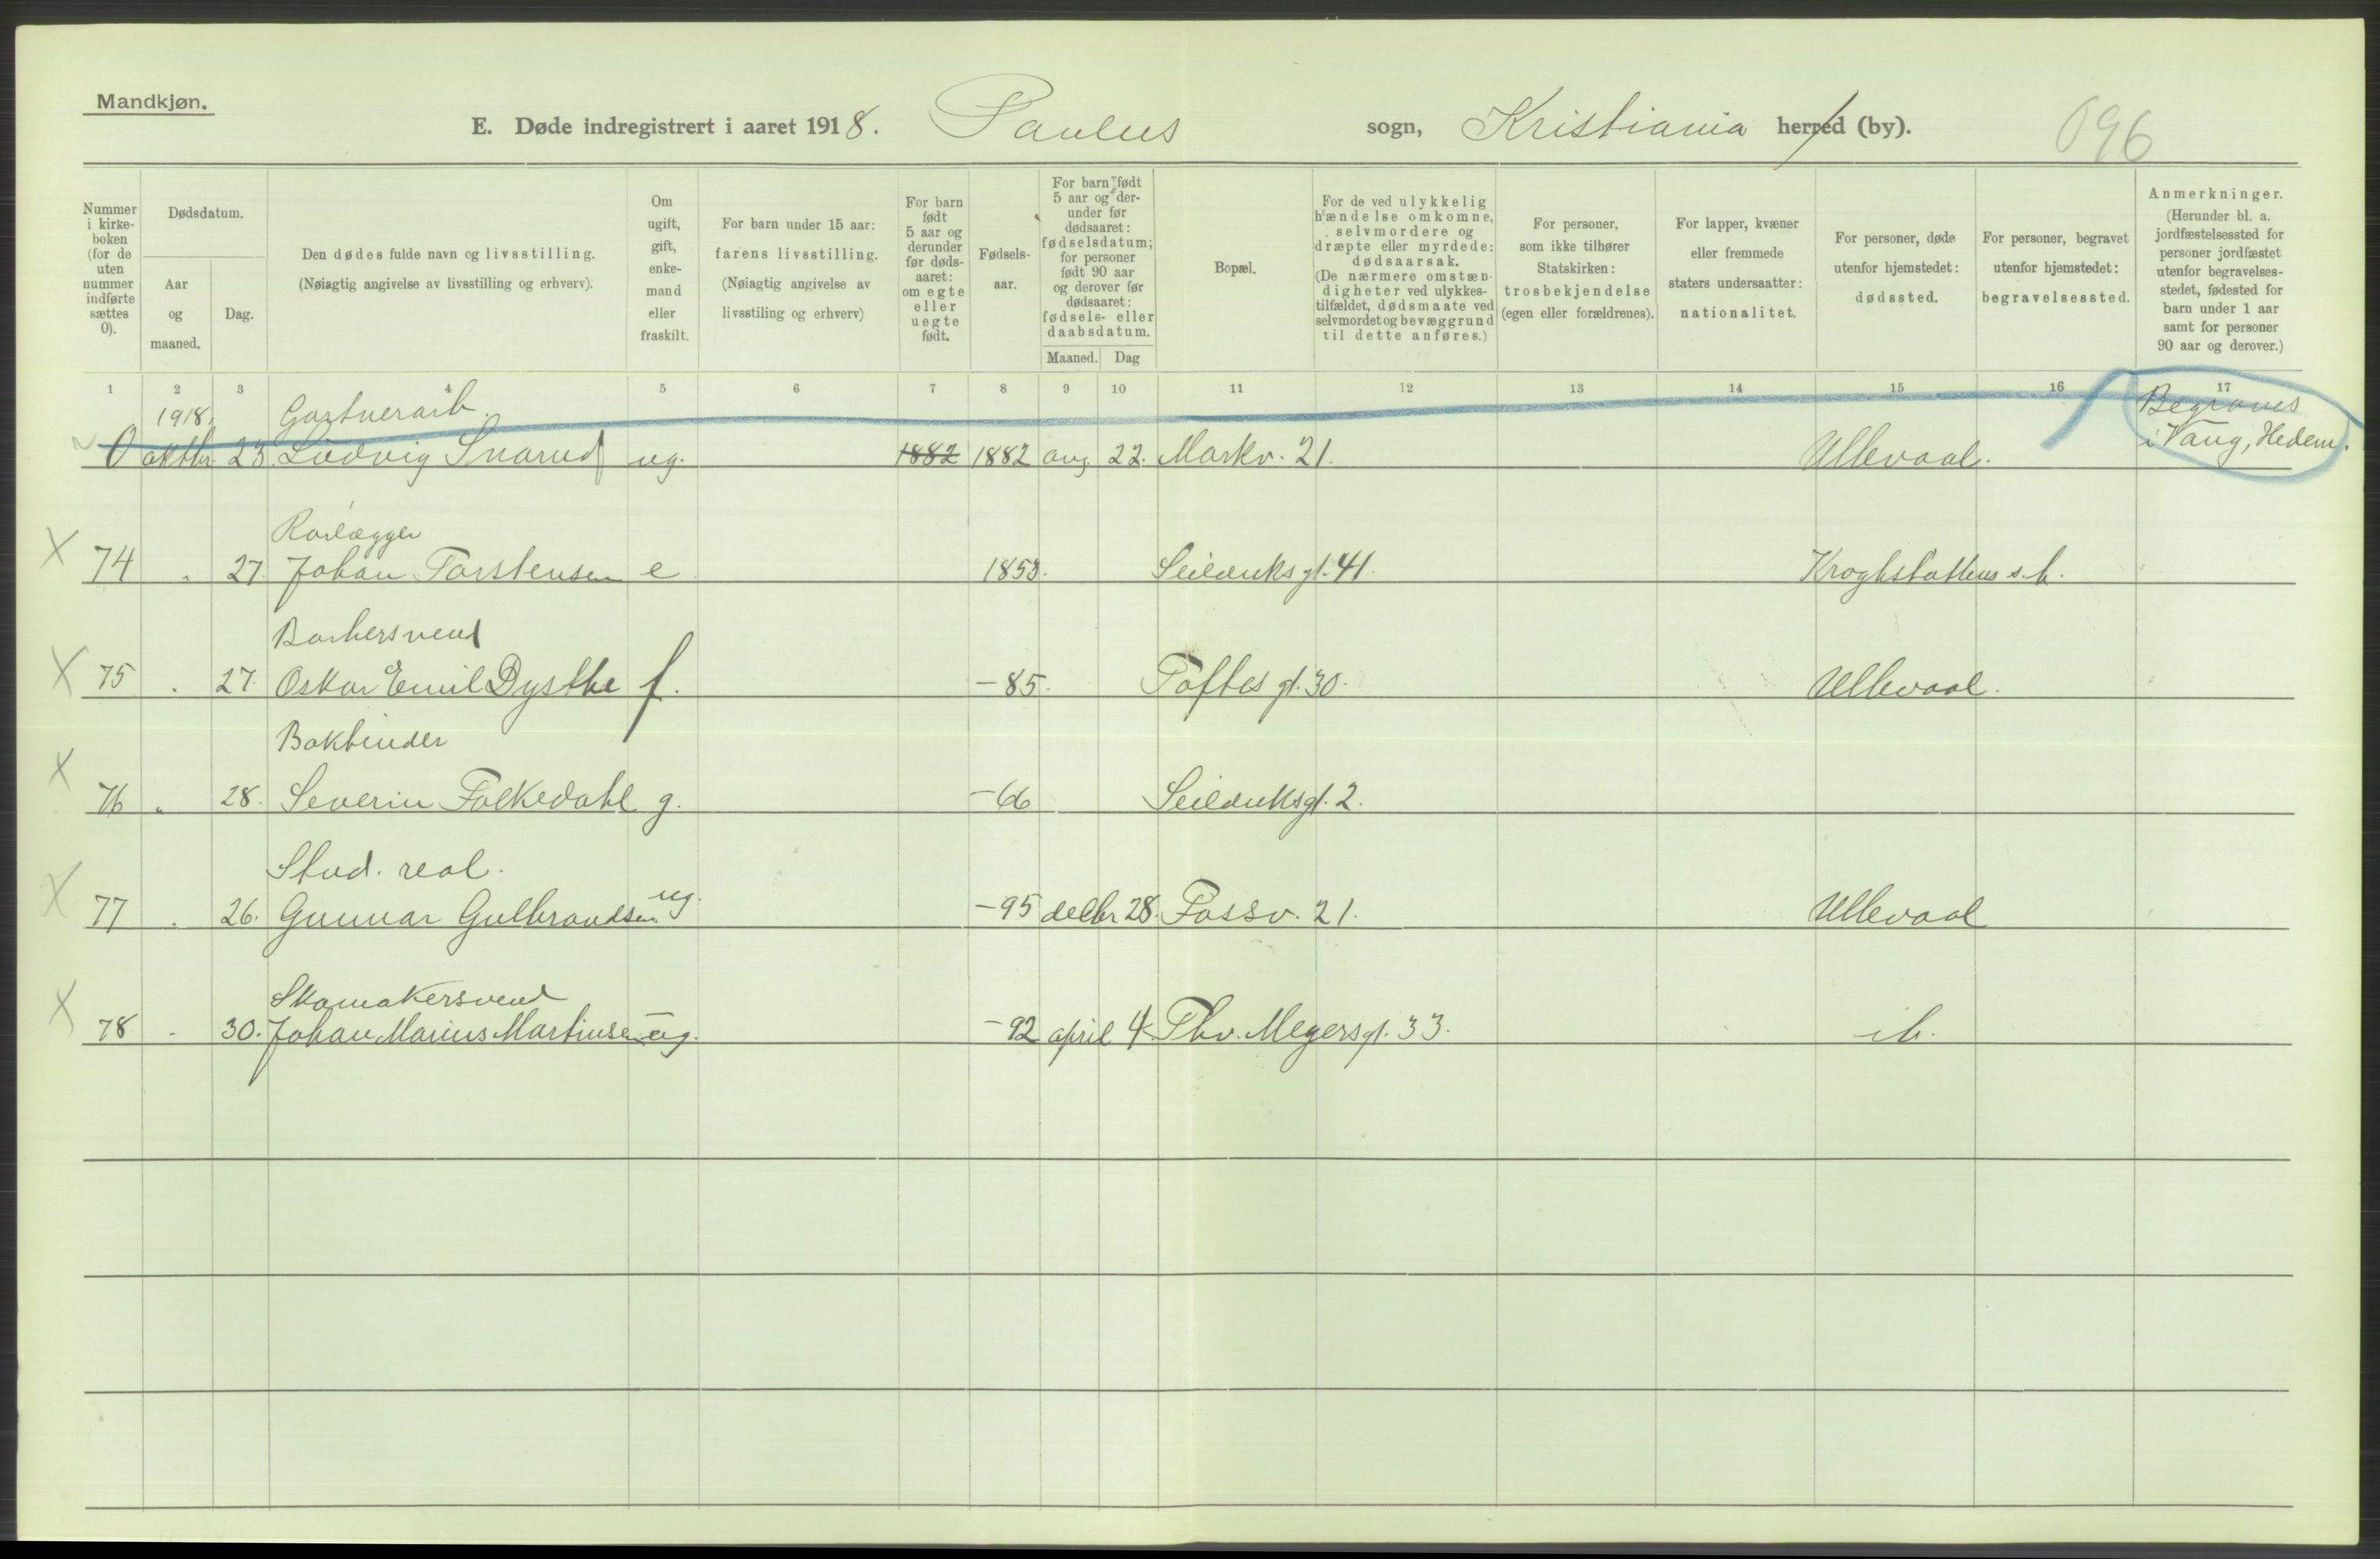 Mandkjøn.
E. Døde indregistrert i aaret 1918. Paulus sogn, Kristiania herred (by). 096
Nummer i kirkeboken (for de uten nummer indførte sættes 0).
Dødsdatum.
Aar og maaned.
Dag.
Den dødes fulde navn og livsstilling.
(Nøiagtig angivelse av livsstilling og erhverv).
Om ugift, gift, enkemand eller fraskilt.
For barn under 15 aar:
farens livsstilling.
(Nøiagtig angivelse av livsstiling og erhverv)
For barn født 5 aar og derunder før dødsaaret: om egte eller uegte født.
Fødselsaar.
For barn født 5 aar og derunder før dødsaaret: fødselsdatum; for personer født 90 aar og derover før dødsaaret: fødsels- eller daabsdatum.
Maaned. Dag
Bopæl.
For de ved ulykkelig hændelse omkomne, selvmordere og dræpte eller myrdede: dødsaarsak.
(De nærmere omstændigheter ved ulykkestilfældet, dødsmaate ved selvmordet og bevæggrund til dette anføres.)
For personer, som ikke tilhører Statskirken: trosbekjendelse (egen eller forældrenes).
For lapper, kvæner eller fremmede staters undersaatter: nationalitet.
For personer, døde utenfor hjemstedet: dødssted.
For personer, begravet utenfor hjemstedet: begravelsessted.
Anmerkninger.
(Herunder bl. a. jordfæstelsessted for personer jordfæstet utenfor begravelsesstedet, fødested for barn under 1 aar samt for personer 90 aar og derover.)
1 2 3 4 5 6 7 8 9 10 11 12 13 14 15 16 17
1918. Gartnerarb. Begraves
0 oktbr. 23. Ludvig Snarud ug. 1882 1882 aug 22. Markv. 21. Ullevaal. i Vang, Hedem.
Rørlægger
X 74 " 27. Johan Torstensen e 1853. Seilduksgt. 41. Kroghstøttens s.h.
Barbersvend
X 75 " 27. Oskar Emil Dysthe f. -85. Toftes gt. 30. Ullevaal.
Bokbinder
X 76 " 28. Severin Folkedahl g. -66 Seilduksgt. 2.
Stud. real.
X 77 " 26. Gunnar Gulbrandsen ug. -95 decbr 28. Fossv. 21. Ullevaal
Skomakersvend
X 78 - 30. Johan Marius Martinsen ug. -92 april 4. Thv. Meyersgt. 33. ib.